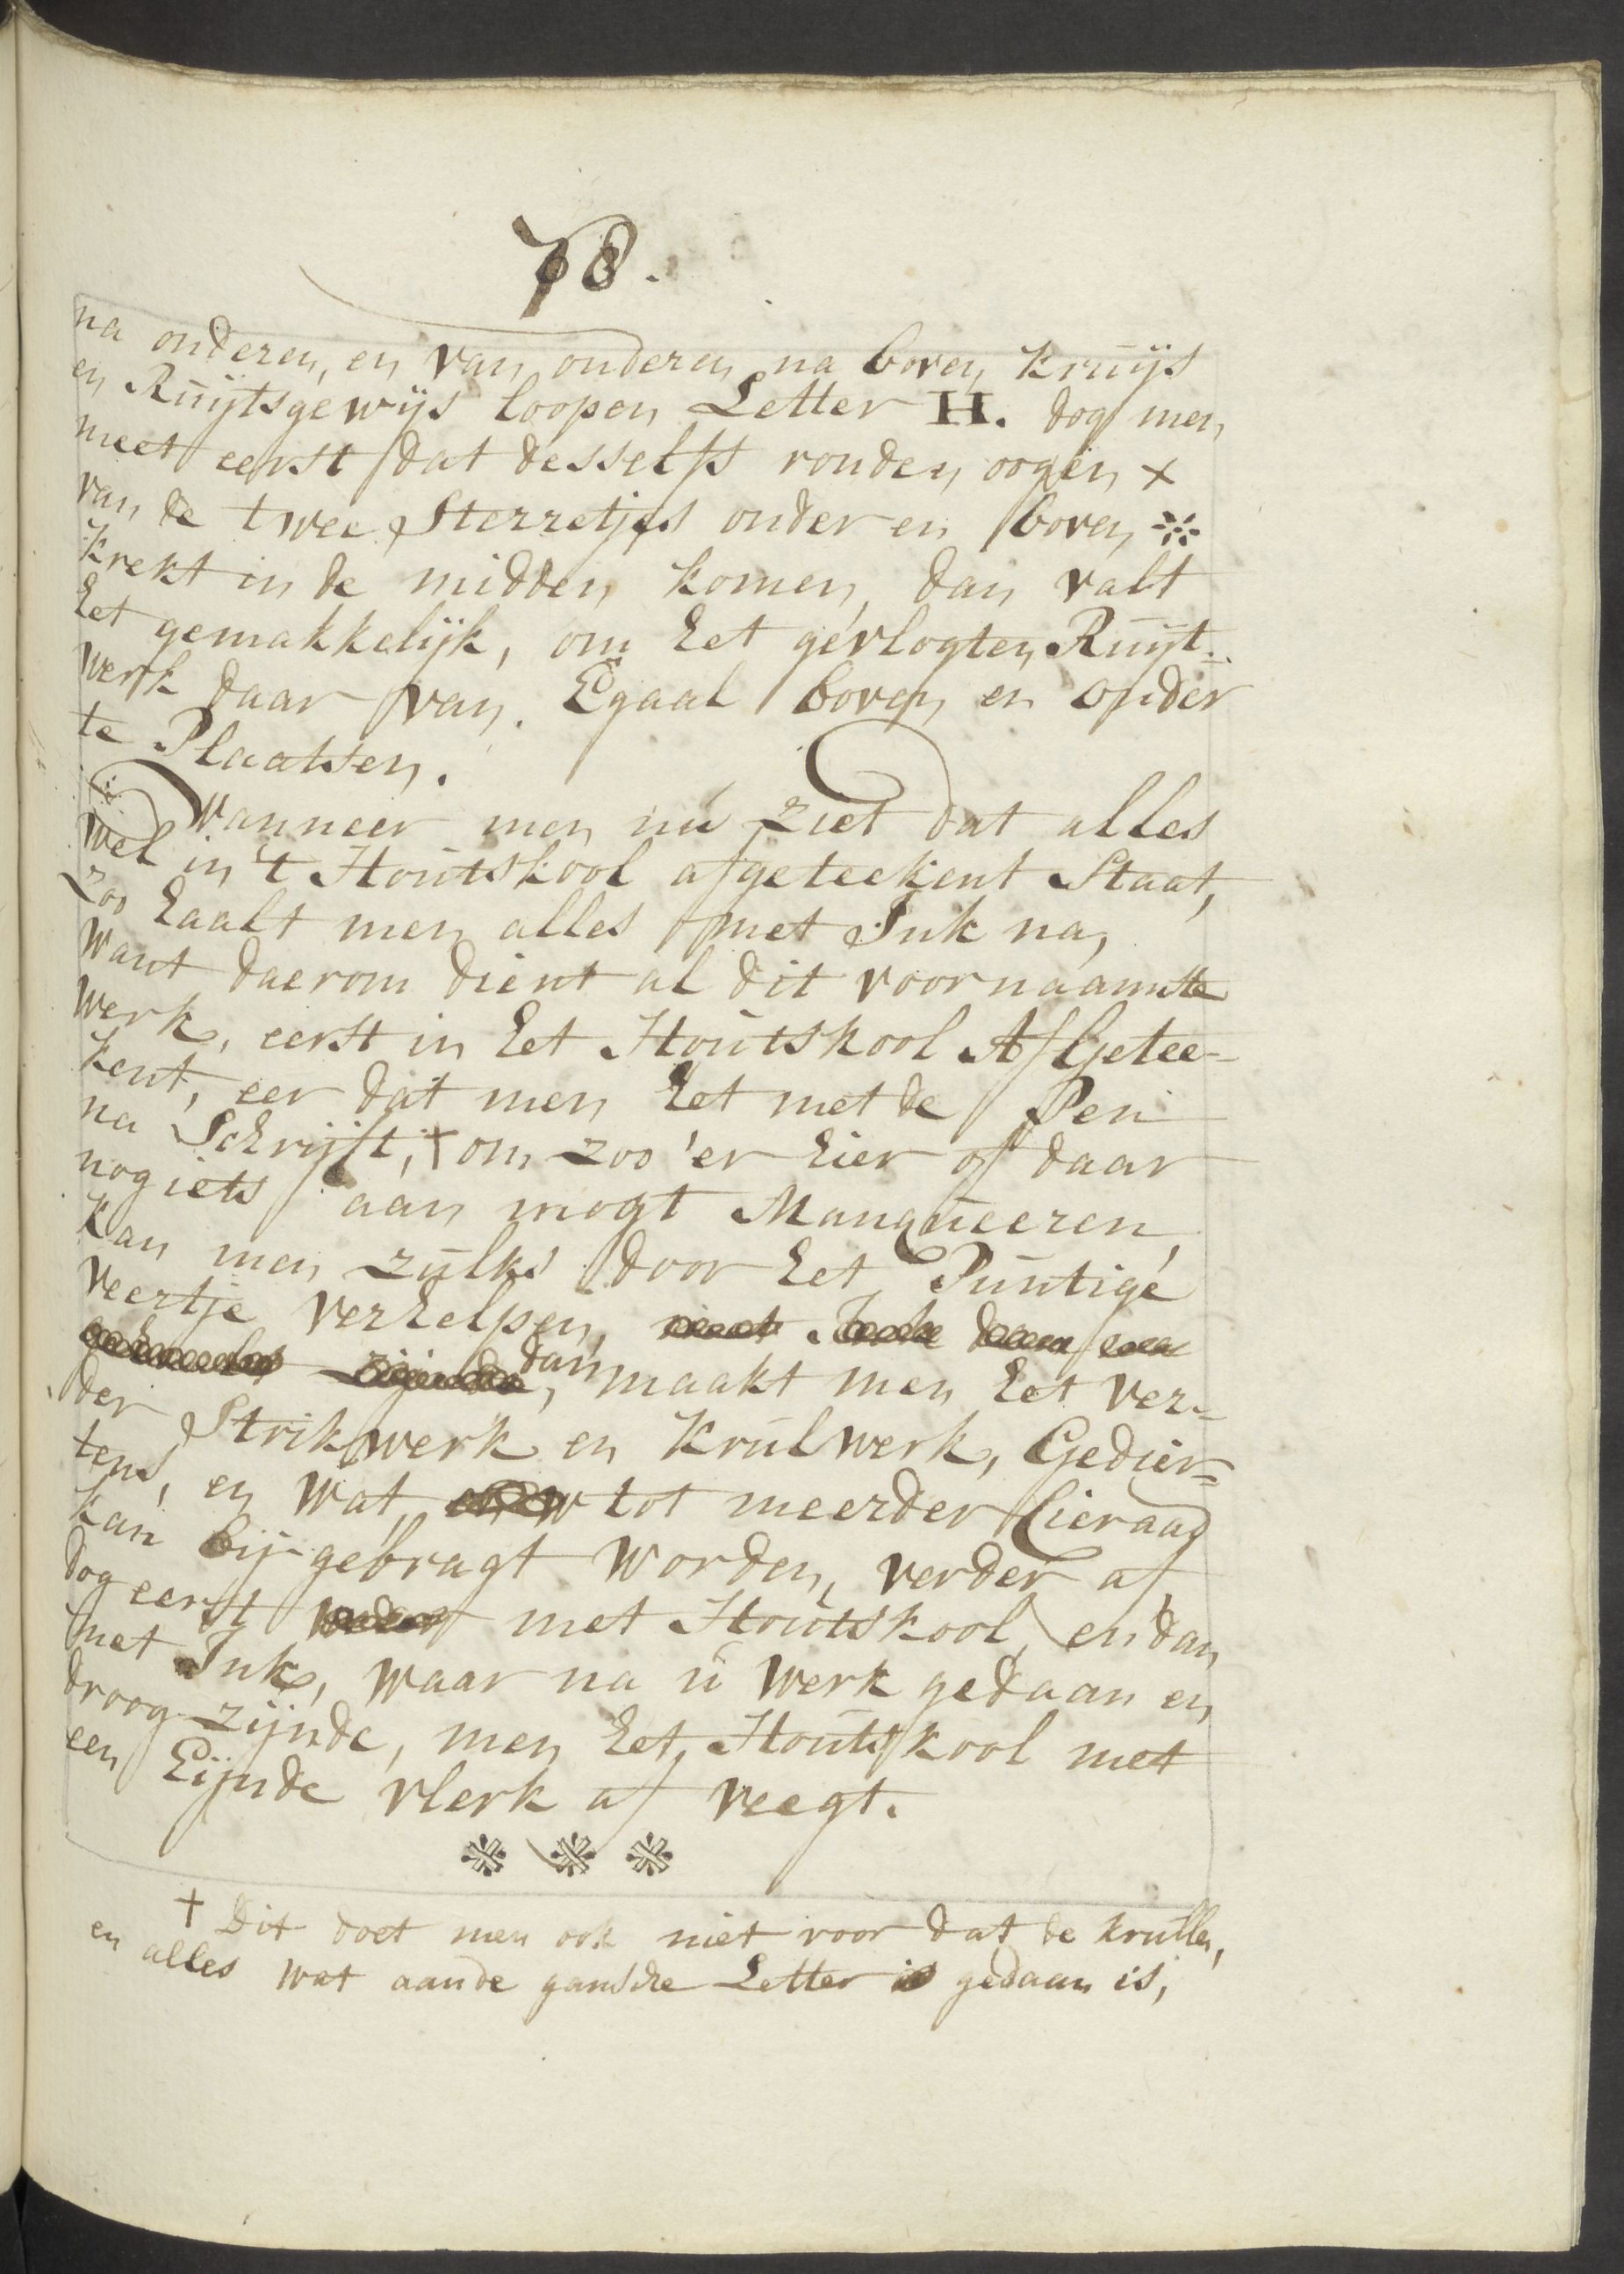 78.
na onderen, en van onderen na boven kruijs
en Ruijtsgewijs loopen Letter H. dog men
meet eerst dat desselfs ronden oogen x
van de twee Sterretjes onder en boven ※
krekt in de midden komen, dan valt
het gemakkelijk, om het gevlogten Ruijt-
werk daar van. Egaal boven en onder
te Plaatsen.
Wanneer men nu ziet dat alles
wel in 't Houtskool afgeteekent Staat,
zoo haalt men alles met Ink na,
want daerom dient al dit voornaamste
werk, eerst in het Houtskool Afgetee-
kent, eer dat men het met de Pen
na Schrijft, † om zoo 'er hier of daar
nog iets aan mogt Manqueeren,
kan men zulks door het Puntige
veertje verhelpen,
dan maakt men het ver-
der Strikwerk en Krulwerk, Gedier=
tens, en wat tot meerder Cieraad
kan bij gebragt worden, verder af
dog eerst met Houtskool, en dan
met Ink, waar na u werk gedaan en
droog zijnde, men het Houtskool met
een Eijnde vlerk af veegt.
※ ※ ※
† Dit doet men ook niet voor dat de krullen,
en alles wat aan de gansche Letter gedaan is,